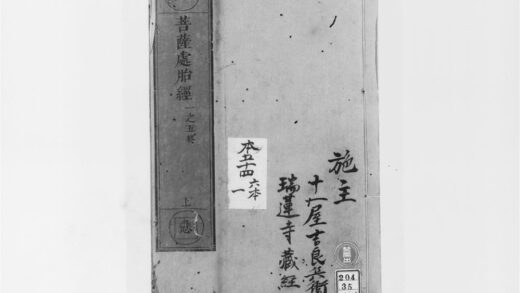 施主
十一屋吉良兵衛
瑞蓮寺藏経
本五十四
六本
一
菩薩處胎經
一之五終
上
惡
204
35